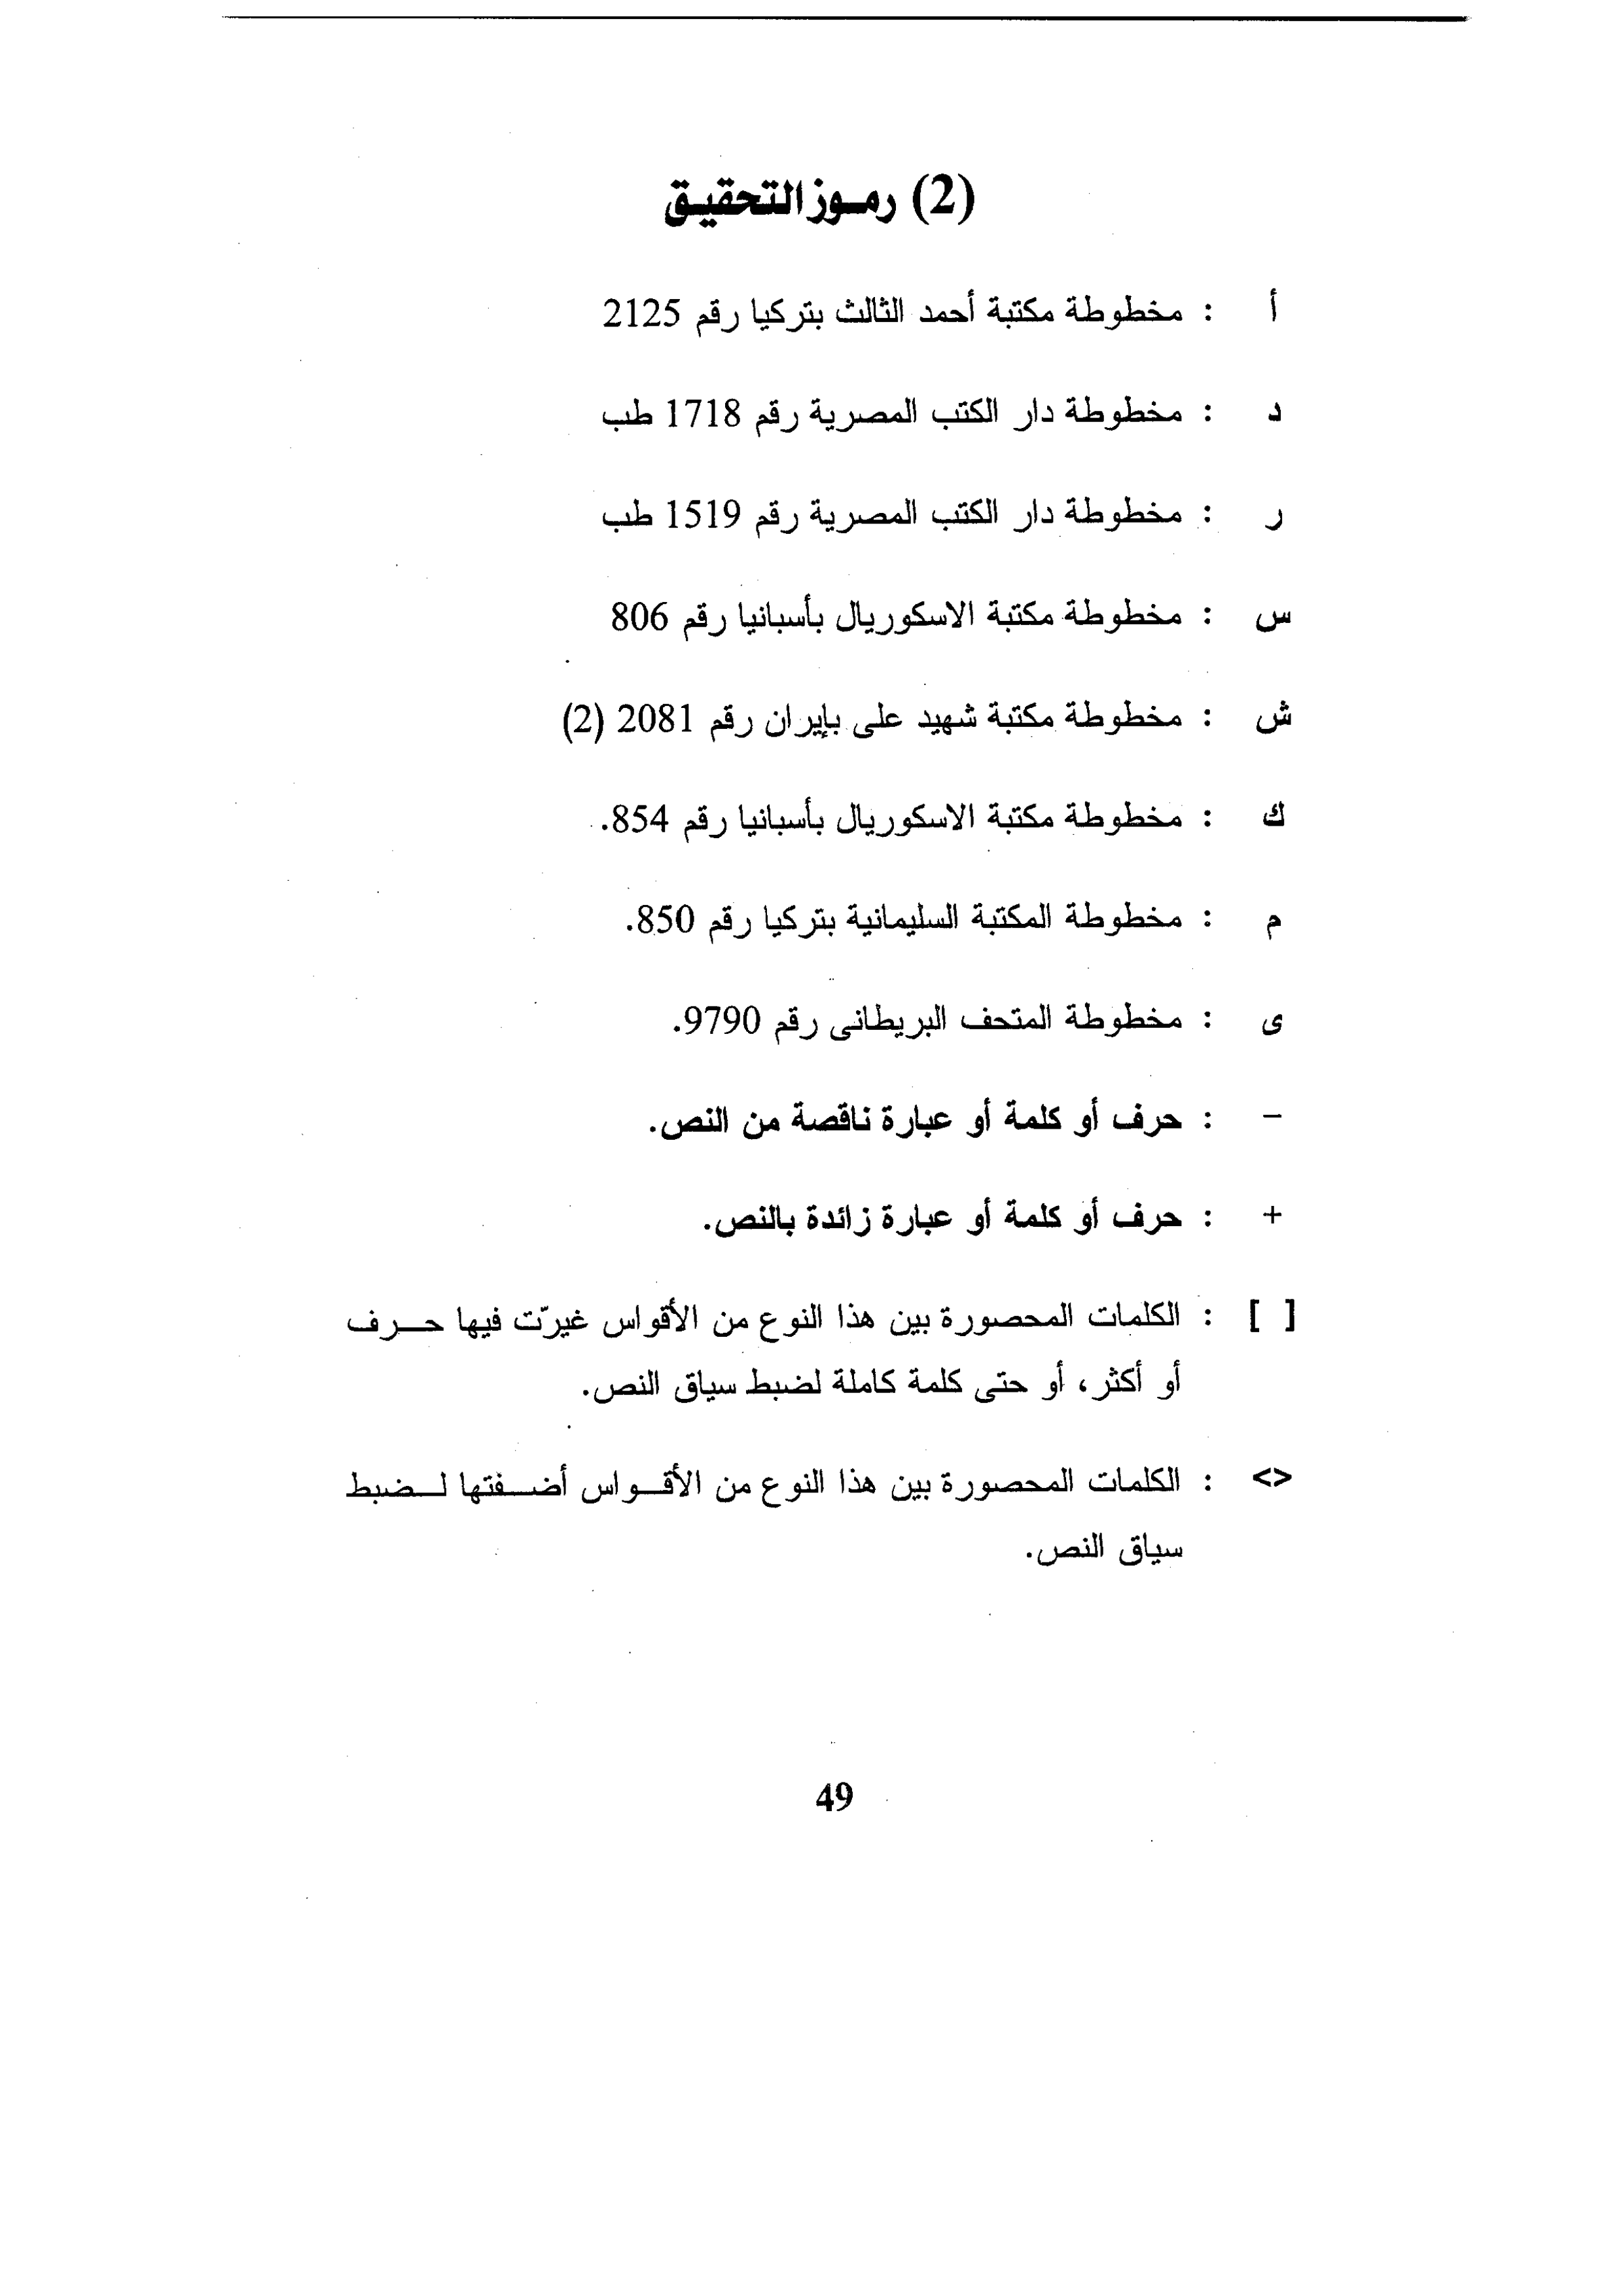 (2) رموز التحقيق
أ : مخطوطة مكتبة أحمد الثالث بتركيا رقم 2125
د : مخطوطة دار الكتب المصرية رقم 1718 طب
ر : مخطوطة دار الكتب المصرية رقم 1519 طب
س : مخطوطة مكتبة الاسكوريال بأسبانيا رقم 806
ش : مخطوطة مكتبة شهيد على بإيران رقم 2081 (2)
ك : مخطوطة مكتبة الاسكوريال بأسبانيا رقم 854.
م : مخطوطة المكتبة السليمانية بتركيا رقم 850.
ى : مخطوطة المتحف البريطانى رقم 9790.
– : حرف أو كلمة أو عبارة ناقصة من النص.
+ : حرف أو كلمة أو عبارة زائدة بالنص.
[ ] : الكلمات المحصورة بين هذا النوع من الأقواس غيرّت فيها حرف
أو أكثر، أو حتى كلمة كاملة لضبط سياق النص.
<> : الكلمات المحصورة بين هذا النوع من الأقواس أضفتها لضبط
سياق النص.
49